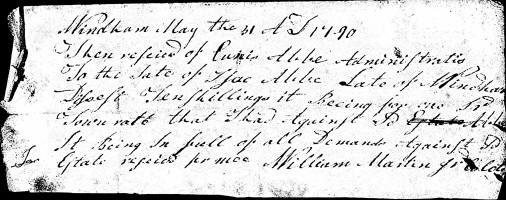 Windham May the 31 A D 1790
Then receied of Eunis Abbe Administratis
To the Sate of Isac Abbe Late of Windham
Desest Ten shillings it Being for one
Town rate that I had Against Sd Estate Abbe
It being In full of all Demands Against Sd
Estate receied pr mee William Martin Jr